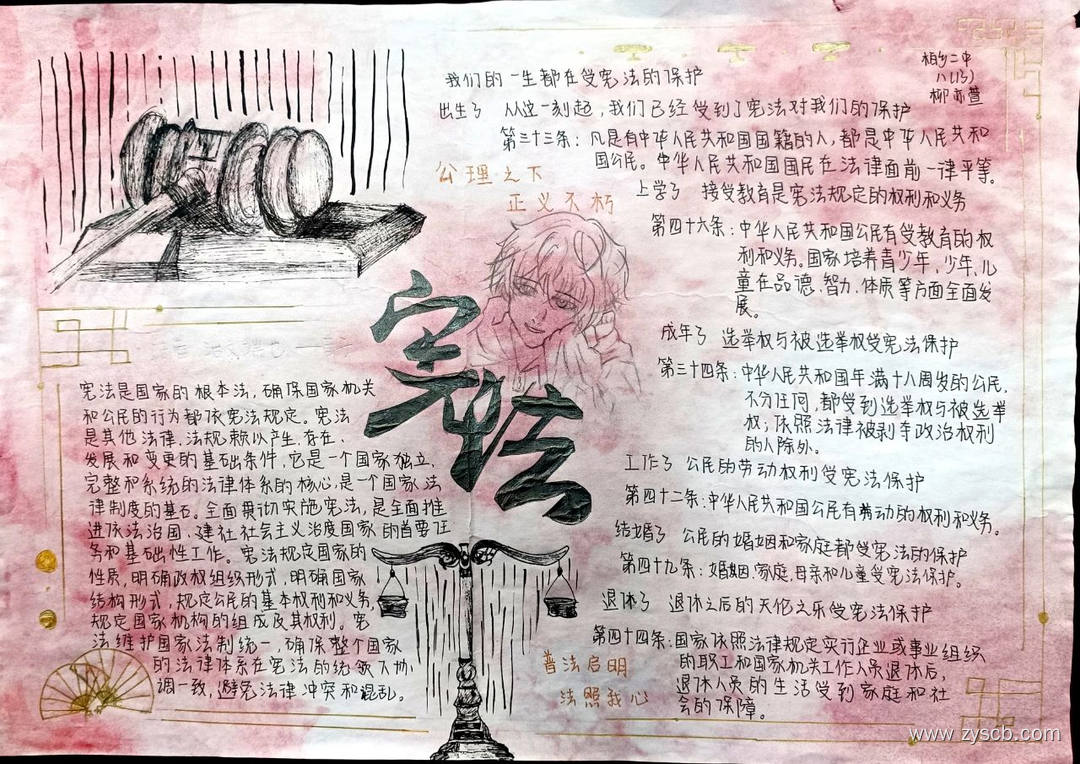 我们的一生都在受宪法的保护
柏乡二中
出生了 从这一刻起,我们已经受到了宪法对我们的保护
第三十三条:凡是有中华人民共和国国籍的人,都是中华人民共和
国公民。中华人民共和国国民在法律面前一律平等。
公理之下
正义不朽
上学了 接受教育是宪法规定的权利和义务
第四十六条:中华人民共和国公民有受教育的权
利和义务。国家培养青少年,少年,儿
童在品德、智力、体质等方面全面发
展。
成年了 选举权与被选举权受宪法保护
第三十四条:中华人民共和国年满十八周岁的公民,
不分任何,都受到选举权与被选举
权;依照法律被剥夺政治权利
的人除外。
工作了 公民的劳动权利受宪法保护
第四十二条:中华人民共和国公民有劳动的权利和义务。
结婚了 公民的婚姻和家庭都受宪法的保护
第四十九条:婚姻、家庭、母亲和儿童受宪法保护。
退休了 退休之后的天伦之乐受宪法保护
第四十四条:国家依照法律规定实行企业或事业组织
的职工和国家机关工作人员退休后,
退休人员的生活受到家庭和社
会的保障。
宪法
宪法是国家的根本法,确保国家机关
和公民的行为都依宪法规定。宪法
是其他法律、法规赖以产生、存在、
发展和变更的基础条件,它是一个国家独立、
完整和系统的法律体系的核心,是一个国家法
律制度的基石。全面贯彻实施宪法,是全面推
进依法治国、建社社会主义治度国家的首要任
务和基础性工作。宪法规定国家的
性质,明确政权组织形式,明确国家
结构形式,规定公民的基本权利和义务,
规定国家机构的组成及其权利。宪
法维护国家法制统一,确保整个国家
的法律体系在宪法的统领下协
调一致,避免法律冲突和混乱。
普法启明
法照我心
www.zyscb.com